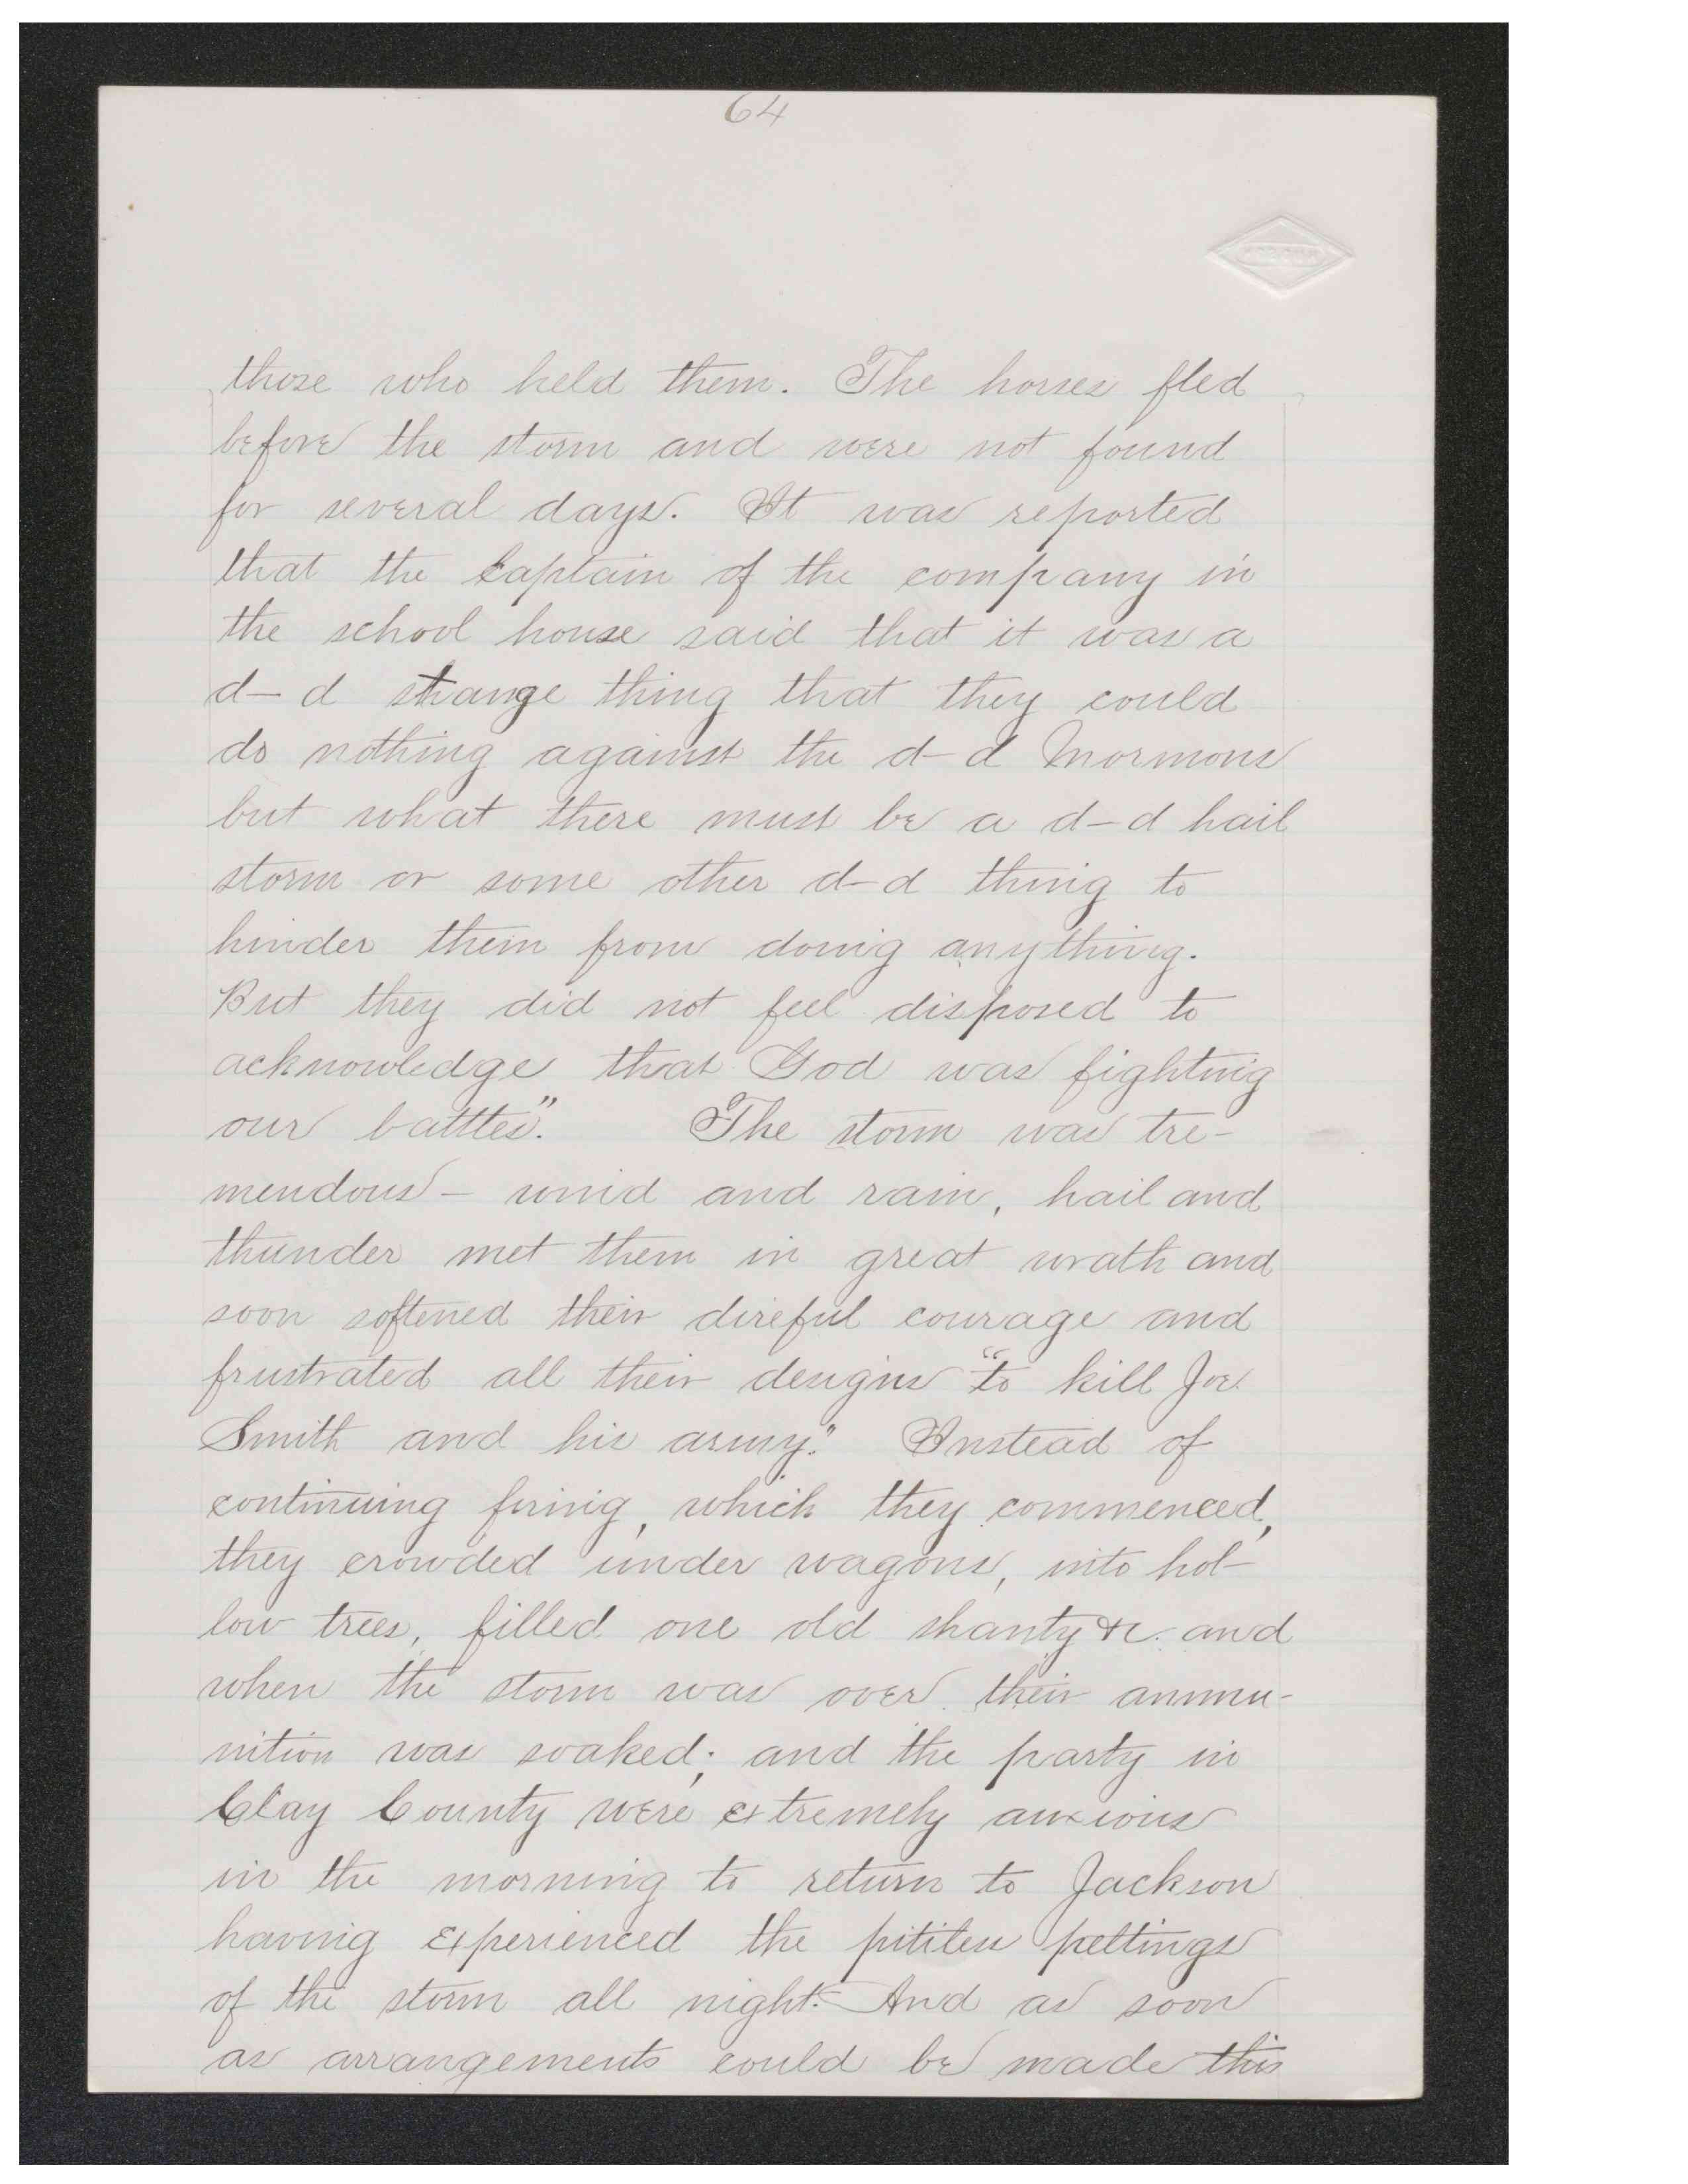 64
those who held them. The horses fled
before the storm and were not found
for several days. It was reported
that the Captain of the company in
the school house said that it was a
d–d strange thing that they could
do nothing against the d–d Mormons
but what there must be a d–d hail
storm or some other d–d thing to
hinder them from doing anything.
But they did not feel disposed to
acknowledge that God was fighting
our batttles". The storm was tre-
mendous – wind and rain, hail and
thunder met them in great wrath and
soon softened their direful courage and
frustrated all their designs "to kill Joe
Smith and his army." Instead of
continuing firing, which they commenced,
they crowded under wagons, into hol-
low trees, filled one old shanty &c. and
when the storm was over their ammu-
nition was soaked; and the party in
Clay County were extremely anxious
in the morning to return to Jackson
having experienced the pitiless peltings
of the storm all night. And as soon
as arrangements could be made this